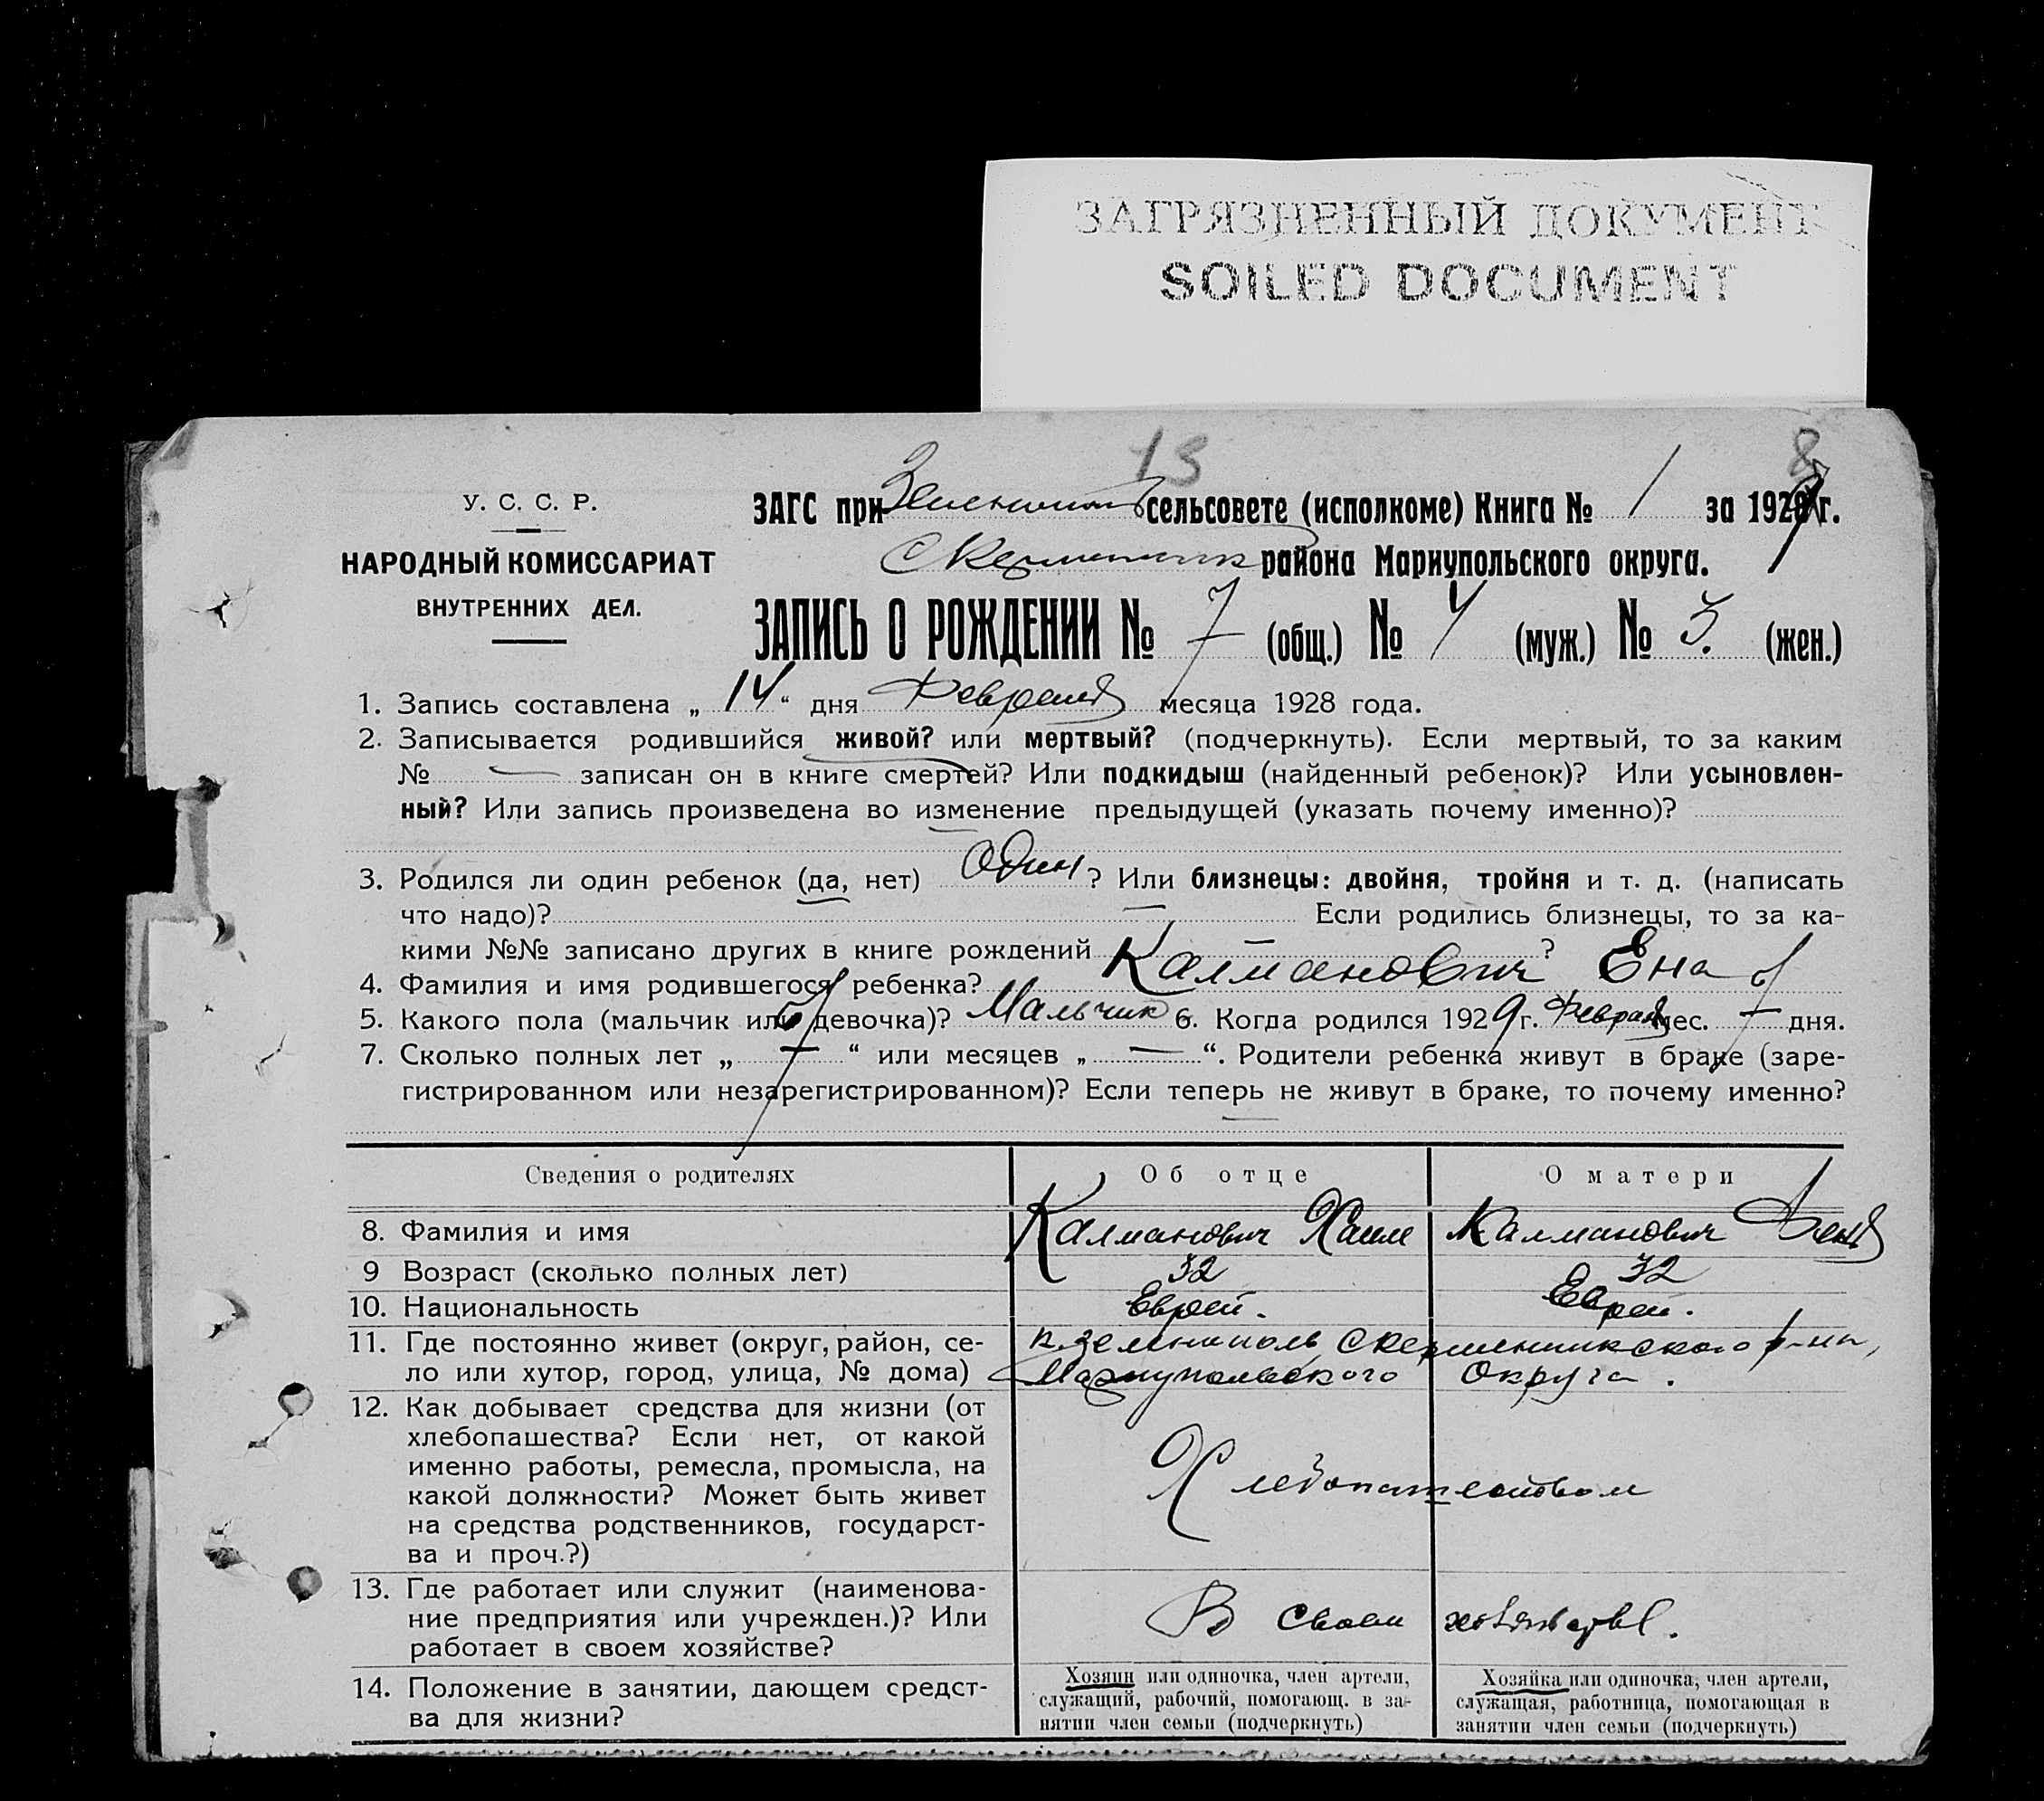 ЗАГРЯЗНЕННЫЙ ДОКУМЕНТ
SOILED DOCUMENT
13 8
У. С. С. Р.
ЗАГС при сельсовете (исполкоме) Книга № 1 за 1929 г.
НАРОДНЫЙ КОМИССАРИАТ
района Мариупольского округа.
ВНУТРЕННИХ ДЕЛ.
ЗАПИСЬ О РОЖДЕНИИ № 7 (общ.) № 4 (муж.) № 3. (жен.)
1. Запись составлена „ 14 “ дня Февраля месяца 1928 года.
2. Записывается родившийся живой? или мертвый? (подчеркнуть). Если мертвый, то за каким
№ — записан он в книге смертей? Или подкидыш (найденный ребенок)? Или усыновлен-
ный? Или запись произведена во изменение предыдущей (указать почему именно)?
3. Родился ли один ребенок (да, нет) один ? Или близнецы: двойня, тройня и т. д. (написать
что надо)? — Если родились близнецы, то за ка-
кими №№ записано других в книге рождений — ?
4. Фамилия и имя родившегося ребенка? Калманович
5. Какого пола (мальчик или девочка)? Мальчик 6. Когда родился 1929 г. Февраля мес. 7 дня.
7. Сколько полных лет „ — “ или месяцев „ — “. Родители ребенка живут в браке (заре-
гистрированном или незарегистрированном)? Если теперь не живут в браке, то почему именно?
—
Сведения о родителях Об отце О матери
8. Фамилия и имя Калманович Хаим Калманович
9 Возраст (сколько полных лет) 32 32
10. Национальность Еврей. Евреи.
11. Где постоянно живет (округ, район, се-
ло или хутор, город, улица, № дома)
р-на,
Мариупольского Округа.
12. Как добывает средства для жизни (от
хлебопашества? Если нет, от какой
именно работы, ремесла, промысла, на
какой должности? Может быть живет
на средства родственников, государст-
ва и проч.?)
Хлебопашеством
13. Где работает или служит (наименова-
ние предприятия или учрежден.)? Или
работает в своем хозяйстве?
В своем
14. Положение в занятии, дающем средст-
ва для жизни?
Хозяин или одиночка, член артели,
служащий, рабочий, помогающ. в за-
нятии член семьи (подчеркнуть)
Хозяйка или одиночка, член артели,
служащая, работница, помогающая в
занятии член семьи (подчеркнуть)